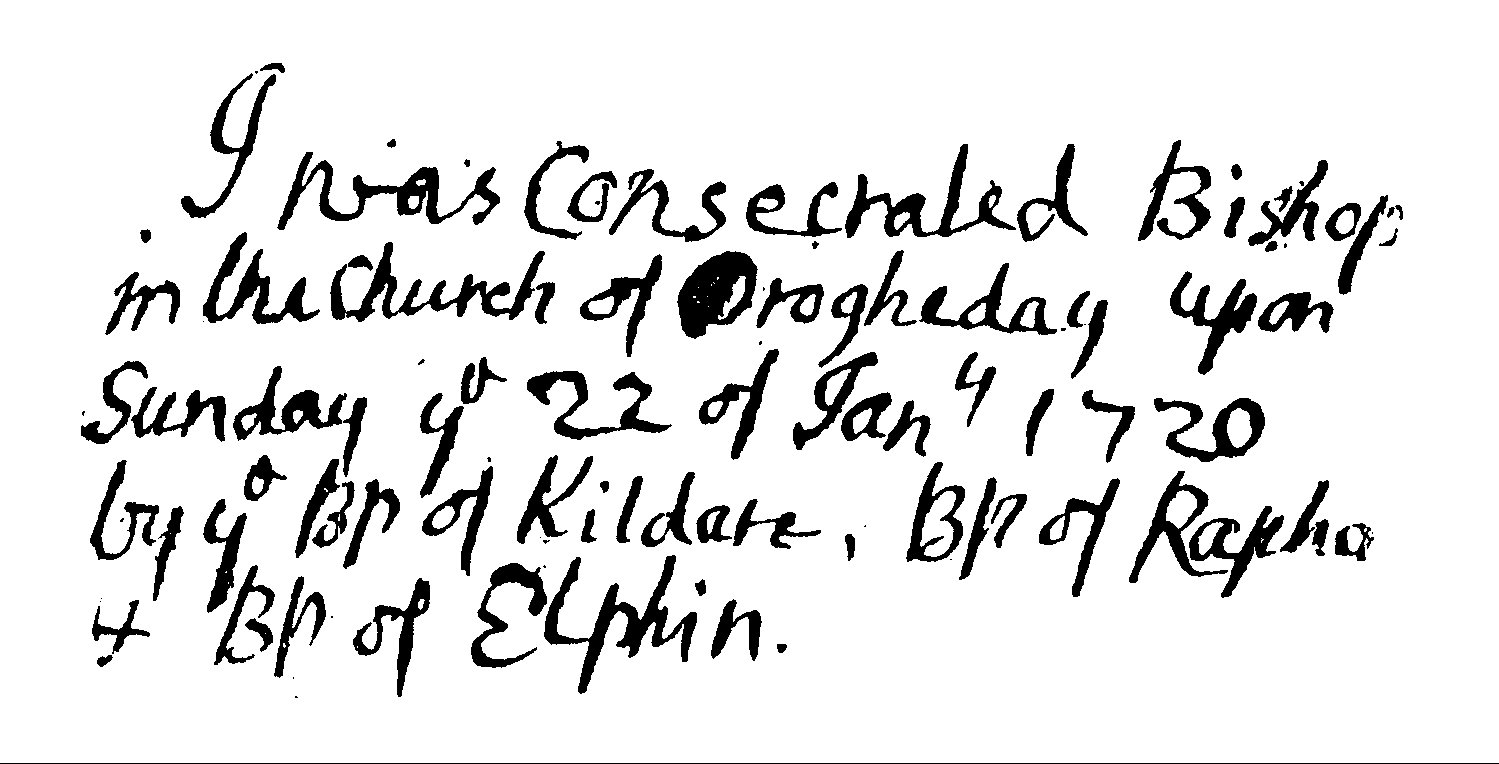 I was Consecrated Bishop
in the Church of Drogheday upon
Sunday ye 22 of Jany 1720
by ye BP of Kildare, BP of Rapho
& BP of Elphin.